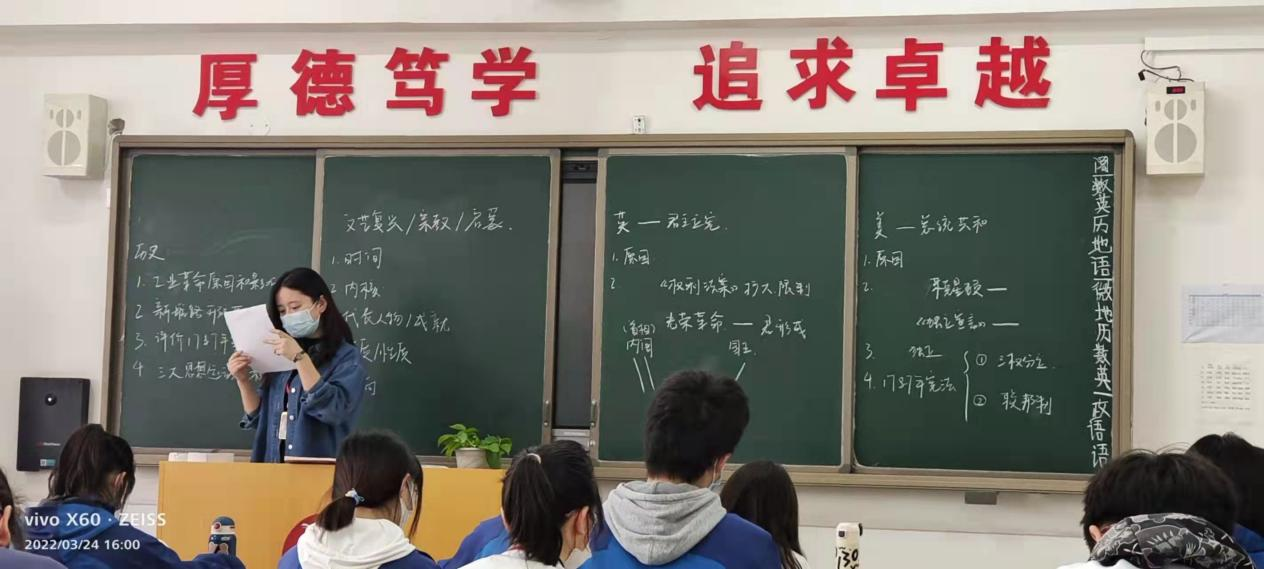 厚德笃学 追求卓越
历史
1. 工业革命原因和影
2 新航路开
3. 评价1787年
4 三大思想
文艺复兴/宗教/启蒙.
1.时间
2 内核
代表人物/成就
/性质
英 — 君主立宪.
1.原因
2. 《权利法案》扩大.限制
光荣革命 — 君形成
(首相)
内阁
国王.
美 — 总统共和
1.原因
2.
《独立宣言》—
3. 独立
4. 1787年宪法
① 三权分立.
② 联邦制
数
英
历
地
语
微
地
历
英
一
政
语
语
130
vivo X60 · ZEISS
2022/03/24 16:00